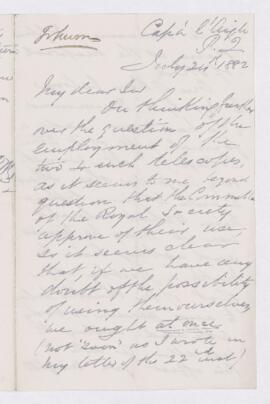 July 24th 1882
My dear Sir
On thinking further
over the question of the
employment of the
two 4 inch telescopes,
as it seems to me beyond
question that the Committee
of the Royal Society
approve of their use,
so it seems clear
that, if we have any
doubt of the possibility
of using them ourselves
we ought at once
(not "soon" as I wrote in
my letter of the 22nd inst)